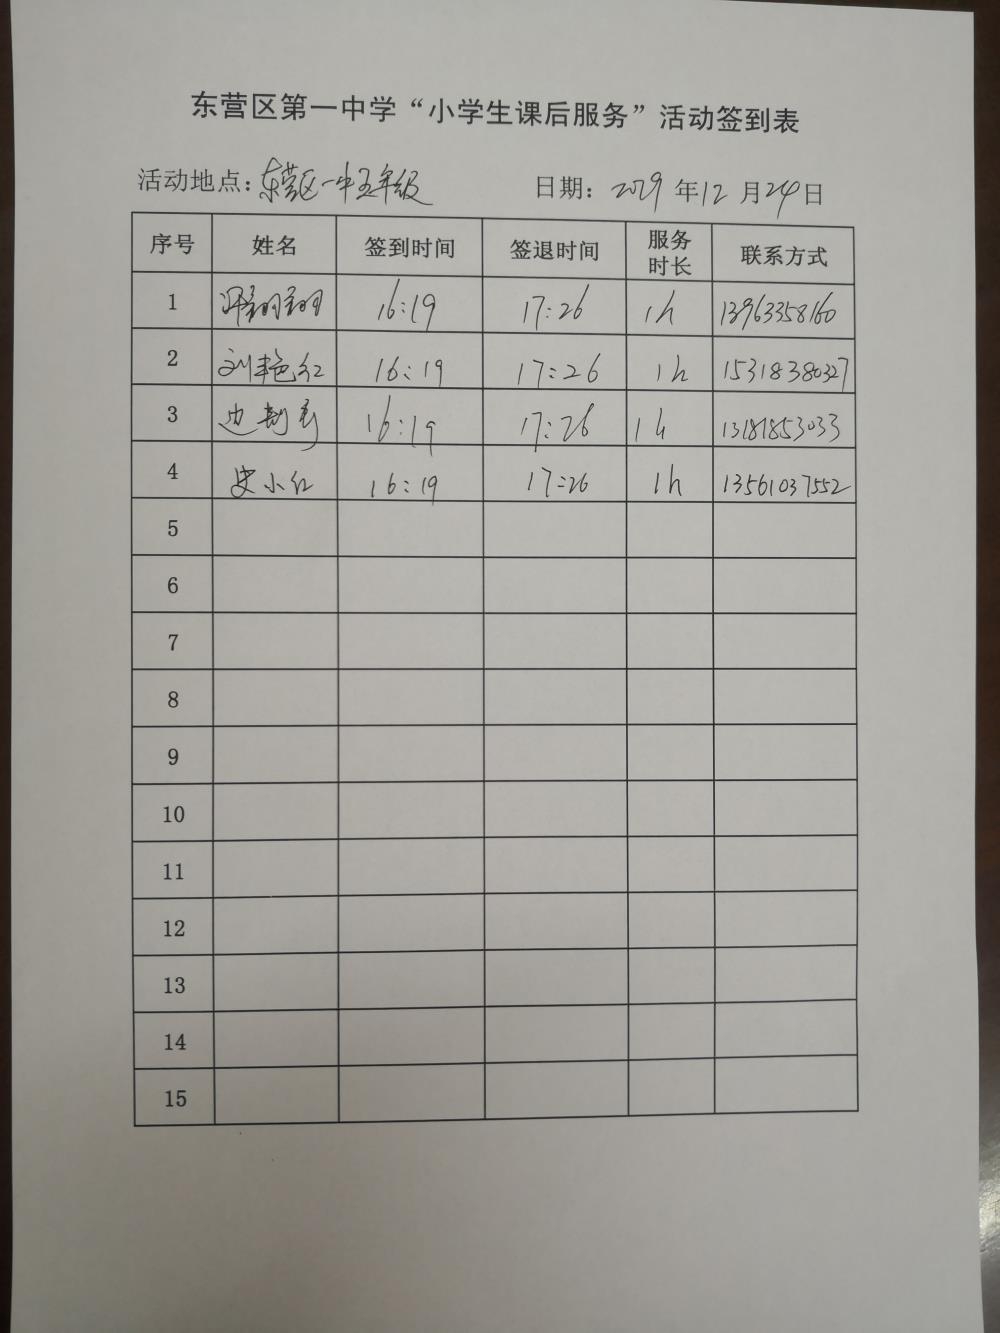 东营区第一中学“小学生课后服务”活动签到表
活动地点：东营区一中五年级 日期：2019年12月24日
序号 姓名 签到时间 签退时间 服务时长 联系方式
1 翔翔 16:19 17:26 1h 13963358160
2 刘艳红 16:19 17:26 1h 15318380327
3 16:19 17:26 1h 13181853033
4 史小红 16:19 17:26 1h 13561037552
5
6
7
8
9
10
11
12
13
14
15